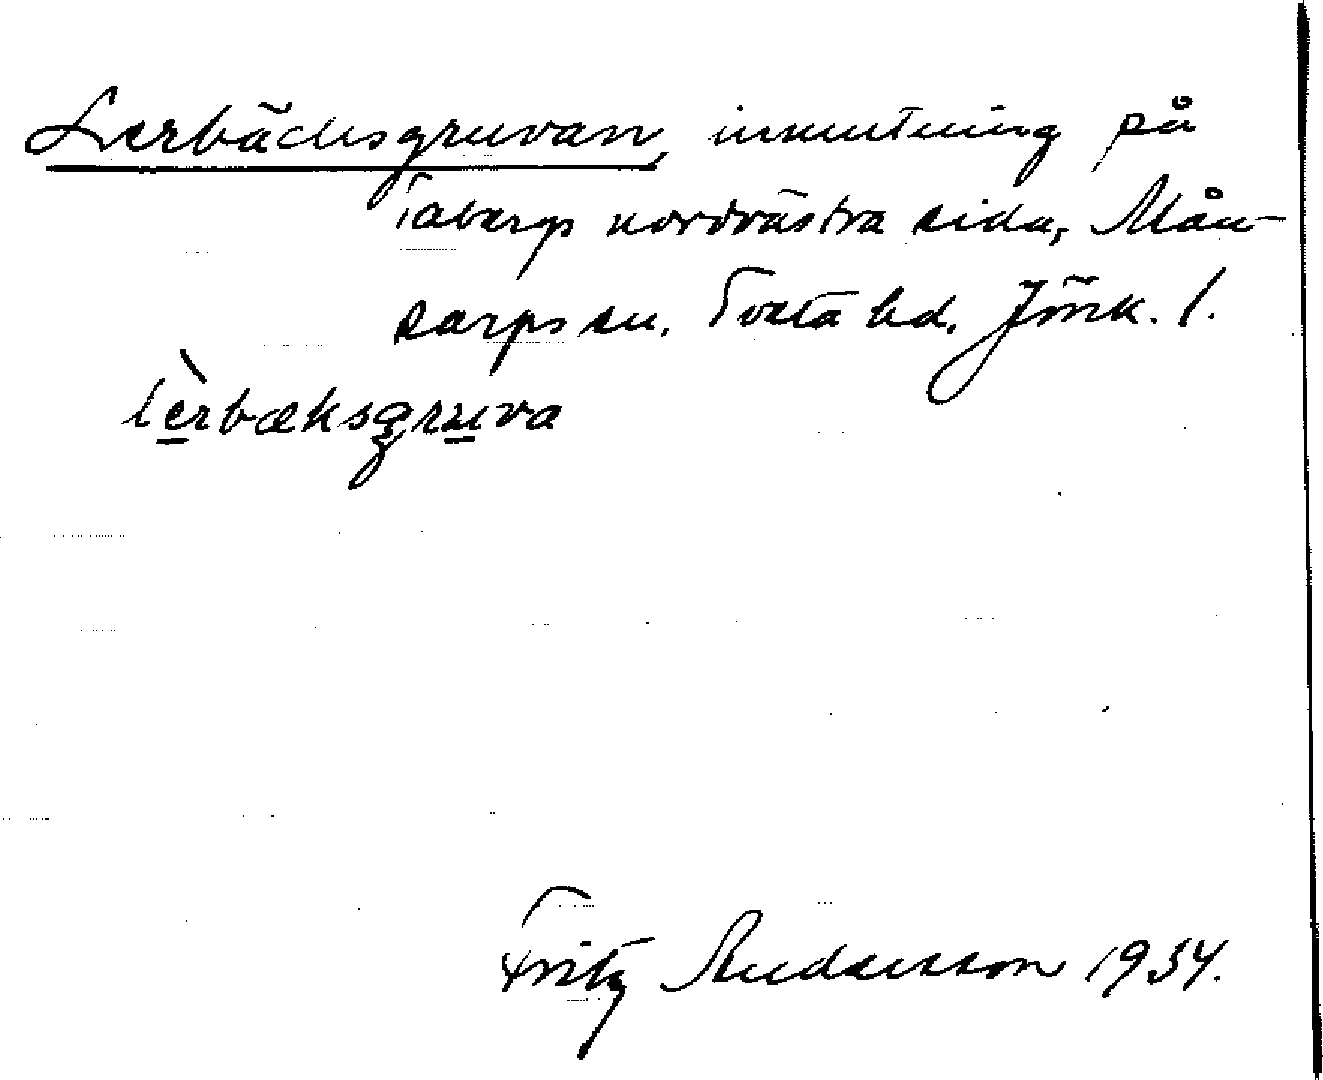 Lerbäcksgruvan, inmutning på
Tabergs nordvästra sida, Mån-
sarps sn. Tveta hd. Jönk. l.
lèrbæksgruva
Fritz Andersson 1934.